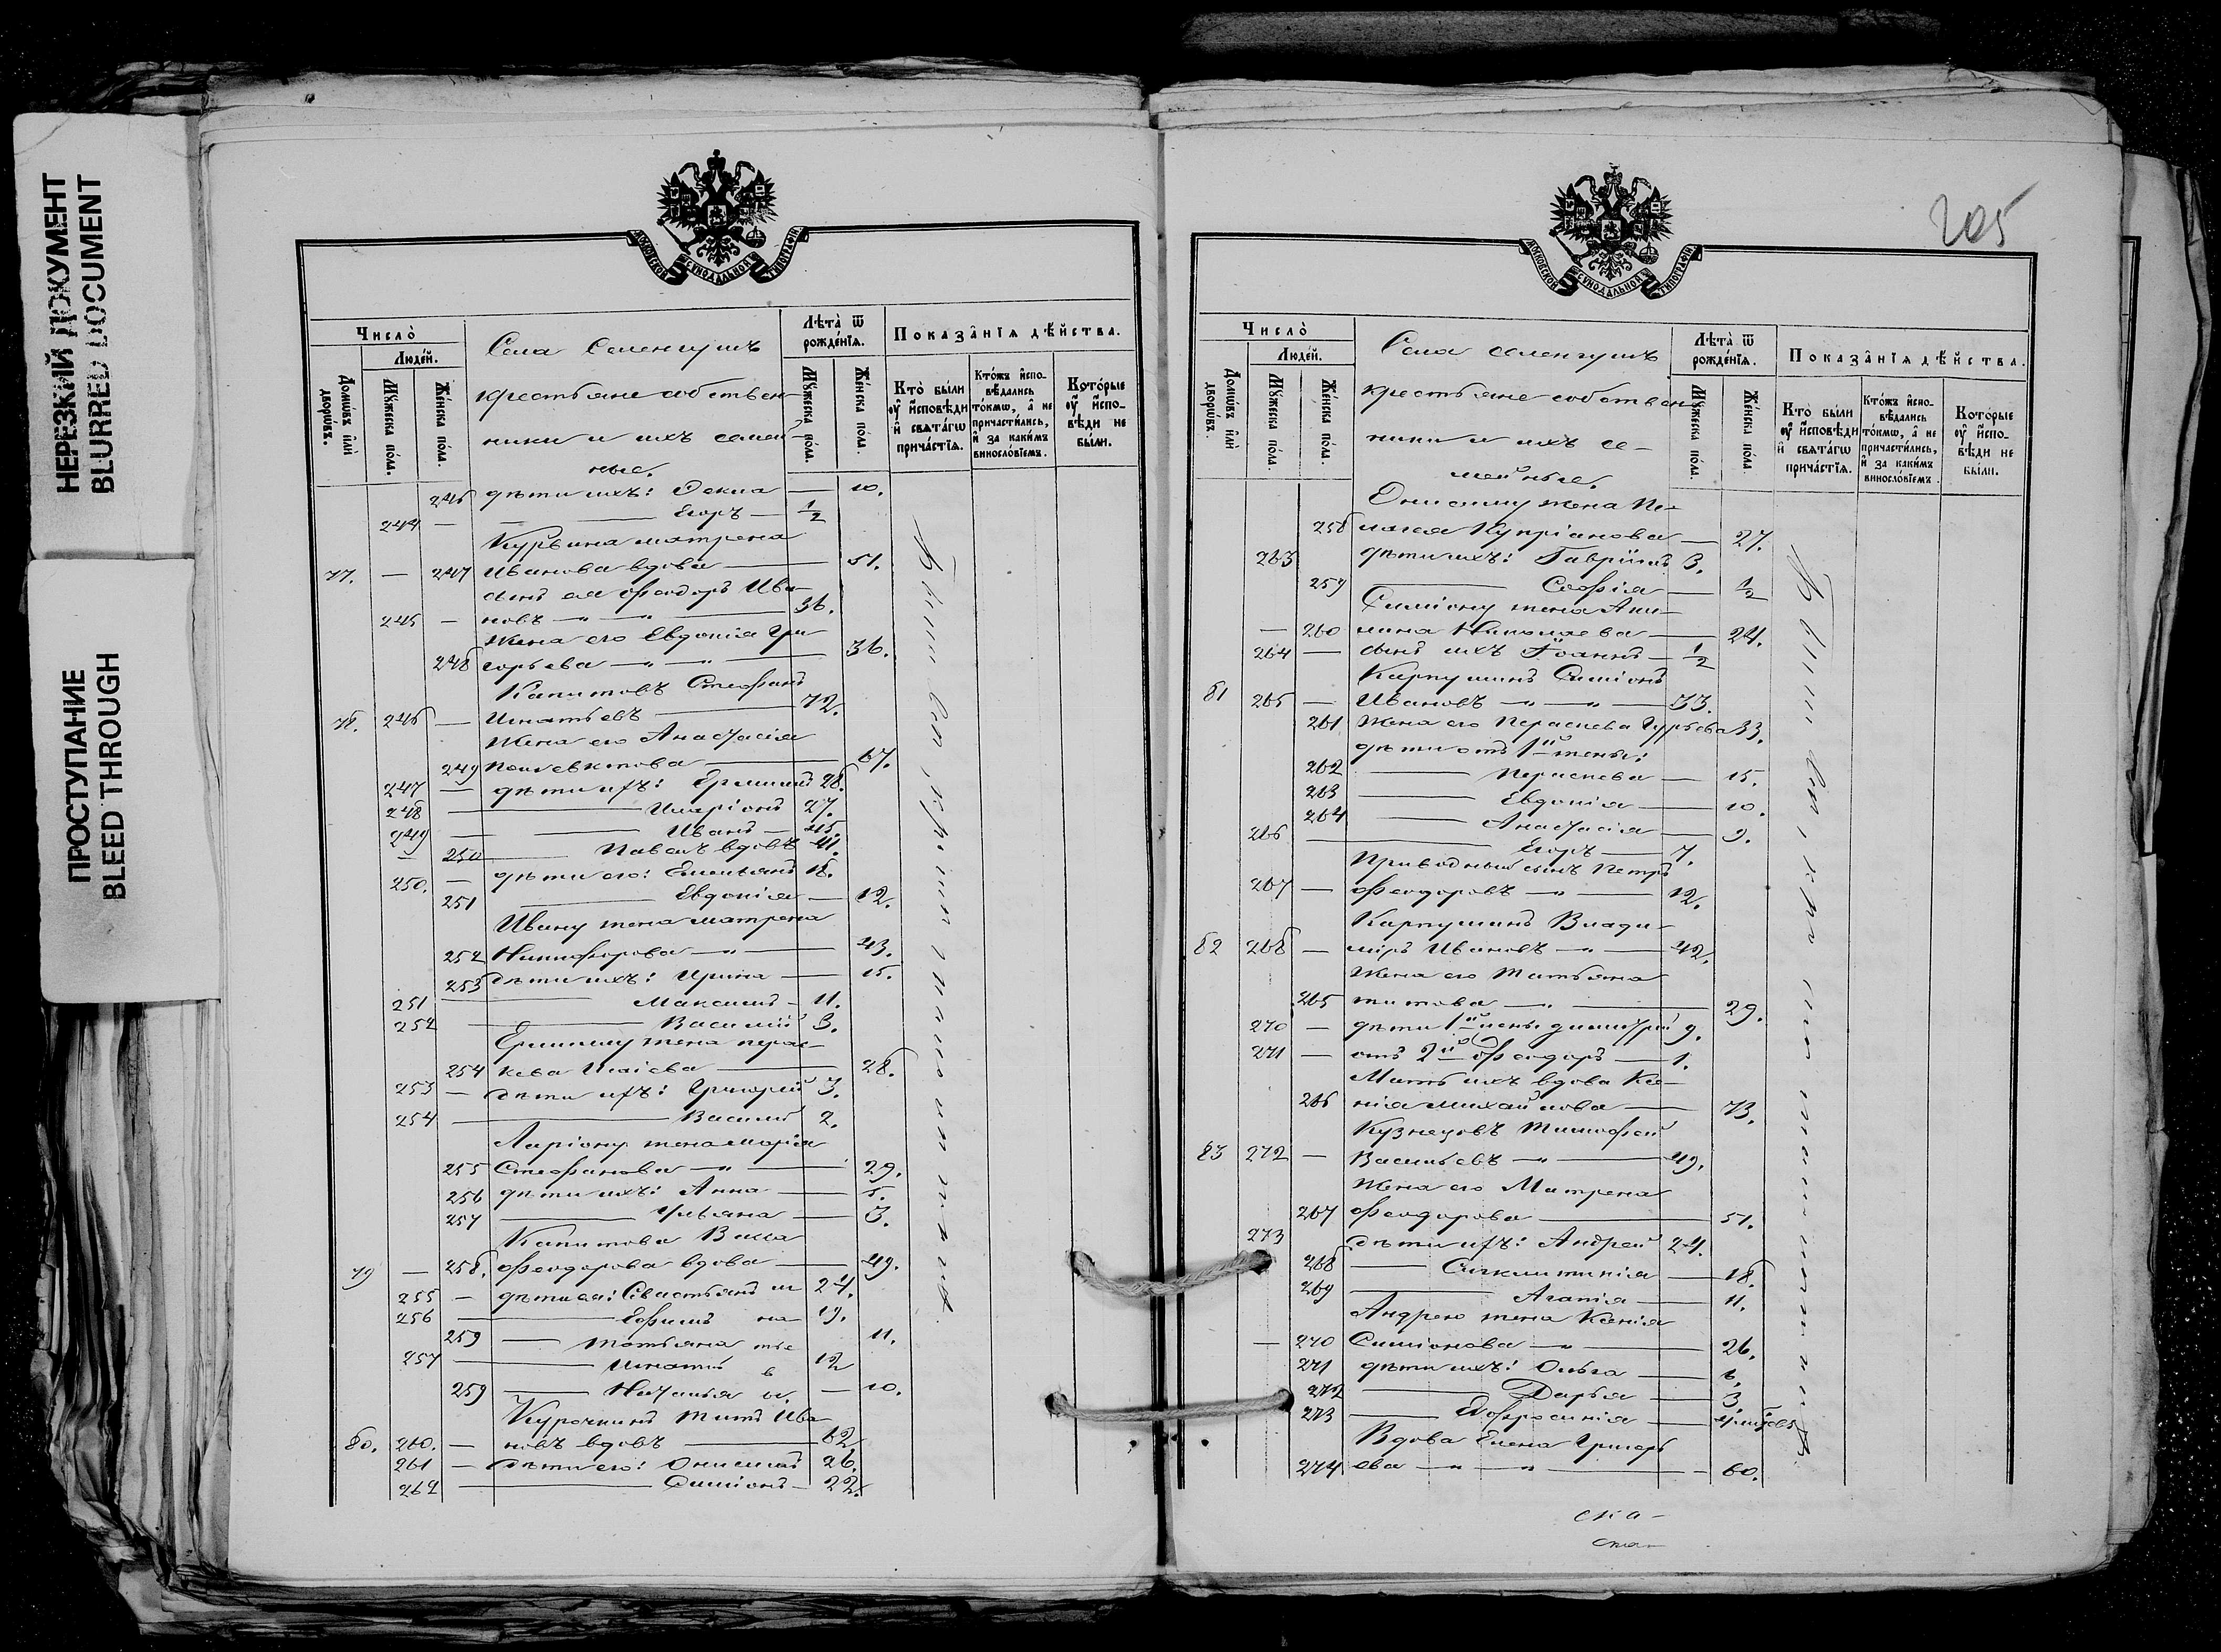 НЕРЕЗКИЙ ДОКУМЕНТ
BLURRED DOCUMENT
ПРОСТУПАНИЕ
BLEED THROUGH
МОСКОВСКОЙ СѴНОДАЛЬНОЙ ТИПОГРАФІИ
Число̀
Людéй.
Домѡ́въ и҆лѝ дворѡ́въ.
Мꙋ́жеска по́ла.
Же́нска по́ла.
Села Селенгушъ
крестьяне собствен-
ники и ихъ семей-
ные.
Лѣ́та ѿ рожде́нїѧ.
Мꙋ́жеска по́ла.
Же́нска по́ла.
Показа̑нїѧ дѣ́йства.
Кто̀ бы́ли ᲂу҆ и҆сповѣ́ди и҆ свѧта́гѡ прича́стїѧ.
Кто́жъ и҆спо-вѣ́дались то́кмѡ, а҆ не причасти́лись, и҆ за каки́мъ винослѡ́вїемъ.
Кото́рые ᲂу҆ и҆спо-вѣ́ди не бы́ли.
246 дѣти ихъ: Ѳекла — 10.
244 — — Егоръ — 1/2
Курьина Матрена
77. — 247 Иванова вдова — 51.
сынъ ея Ѳеодоръ Ива-
245 — новъ — " — " — 36.
Жена его Евдокія Гри-
248 горьева — " — " — 36.
Капитовъ Стефанъ
78. 246 — Игнатьевъ — 72.
Жена его Анастасія
249 Полиевктова — 67.
247 — дѣти ихъ: Ермилій 28.
248 — Иларіонъ 27.
249 — Иванъ — 45.
— 250 — Павелъ вдовъ 41.
250. — дѣти его: Емельянъ 18.
251 — Евдокія — 12.
Ивану жена Матрена
252 Никифорова — " — 43.
253 дѣти ихъ: Ирина — 15.
251 — Максимъ — 11.
252 — Василій 3.
Ермилу жена Парас-
254 кева Исаіева — 28.
253 — Дѣти ихъ: Григорій 3.
254 — Василій 2.
Ларіону жена Марія
255 Стефанова — " — 29.
256 дѣти ихъ: Анна — 5.
257 — Ульяна — 3.
Капитова Васса
79 — 258. Ѳеодорова вдова — 49.
255 — дѣти ея: Севастьянъ 24.
256 — Ефимъ 19.
259 — Татьяна 11.
257 — Игнатій 12
259 — Наталья — 10.
Курочкинъ Титъ Ива-
80. 260. — новъ вдовъ — 62
261 — Дѣти его: Онисимъ 26.
262 — Симіонъ — 22.
Были вси
205
МОСКОВСКОЙ СѴНОДАЛЬНОЙ ТИПОГРАФІИ
Число̀
Людéй.
Домѡ́въ и҆лѝ дворѡ́въ.
Мꙋ́жеска по́ла.
Же́нска по́ла.
Села Селенгушъ
крестьяне собствен-
ники и ихъ се-
мейные.
Лѣ́та ѿ рожде́нїѧ.
Мꙋ́жеска по́ла.
Же́нска по́ла.
Показа̑нїѧ дѣ́йства.
Кто̀ бы́ли ᲂу҆ и҆сповѣ́ди и҆ свѧта́гѡ прича́стїѧ.
Кто́жъ и҆спо-вѣ́дались то́кмѡ, а҆ не причасти́лись, и҆ за каки́мъ винослѡ́вїемъ.
Кото́рые ᲂу҆ и҆спо-вѣ́ди не бы́ли.
Онисиму жена Пе-
258 лагея Купріанова — 27.
263 дѣти ихъ: Гавріилъ 3.
259 — Софія — 1/2
Симіону жена Аки-
— 260 лина Николаева — 24.
264 — сынъ ихъ Іоаннъ — 1/2
Карпушинъ Симіонъ
81 265 — Ивановъ — " — " — 33.
261 Жена его Параскева Гурьева 33.
дѣти отъ 1й жены:
262 — Параскева — 15.
263 — Евдокія — 10.
264 — Анастасія — 9.
266 — Егоръ — 7.
Приводный сынъ Петръ
267 — Ѳеодоровъ — " — 12.
Карпушинъ Влади-
82 268 — міръ Ивановъ — " — 42.
Жена его Татьяна
265 Титова — " — 29.
270 — дѣти 1й жены Димитрій 9.
271 — отъ 2й Ѳеодоръ — 1.
Мать ихъ вдова Ксе-
266 нія Михайлова — 73.
Кузнецовъ Тимофей
83 272 — Васильевъ — " — 49.
Жена его Матрена
267 Ѳеодорова — 51.
273 Дѣти ихъ: Андрей 24.
268 — Синклитикія — 18.
269 — Агапія — 11.
Андрею жена Ксенія
— 270 Симіонова — " — 26.
271 дѣти ихъ: Ольга — 6.
272 — Дарья — 3.
273 — Евфросинія
Вдова Елена Григорь
274 ева — " — " — 60.
Были вси